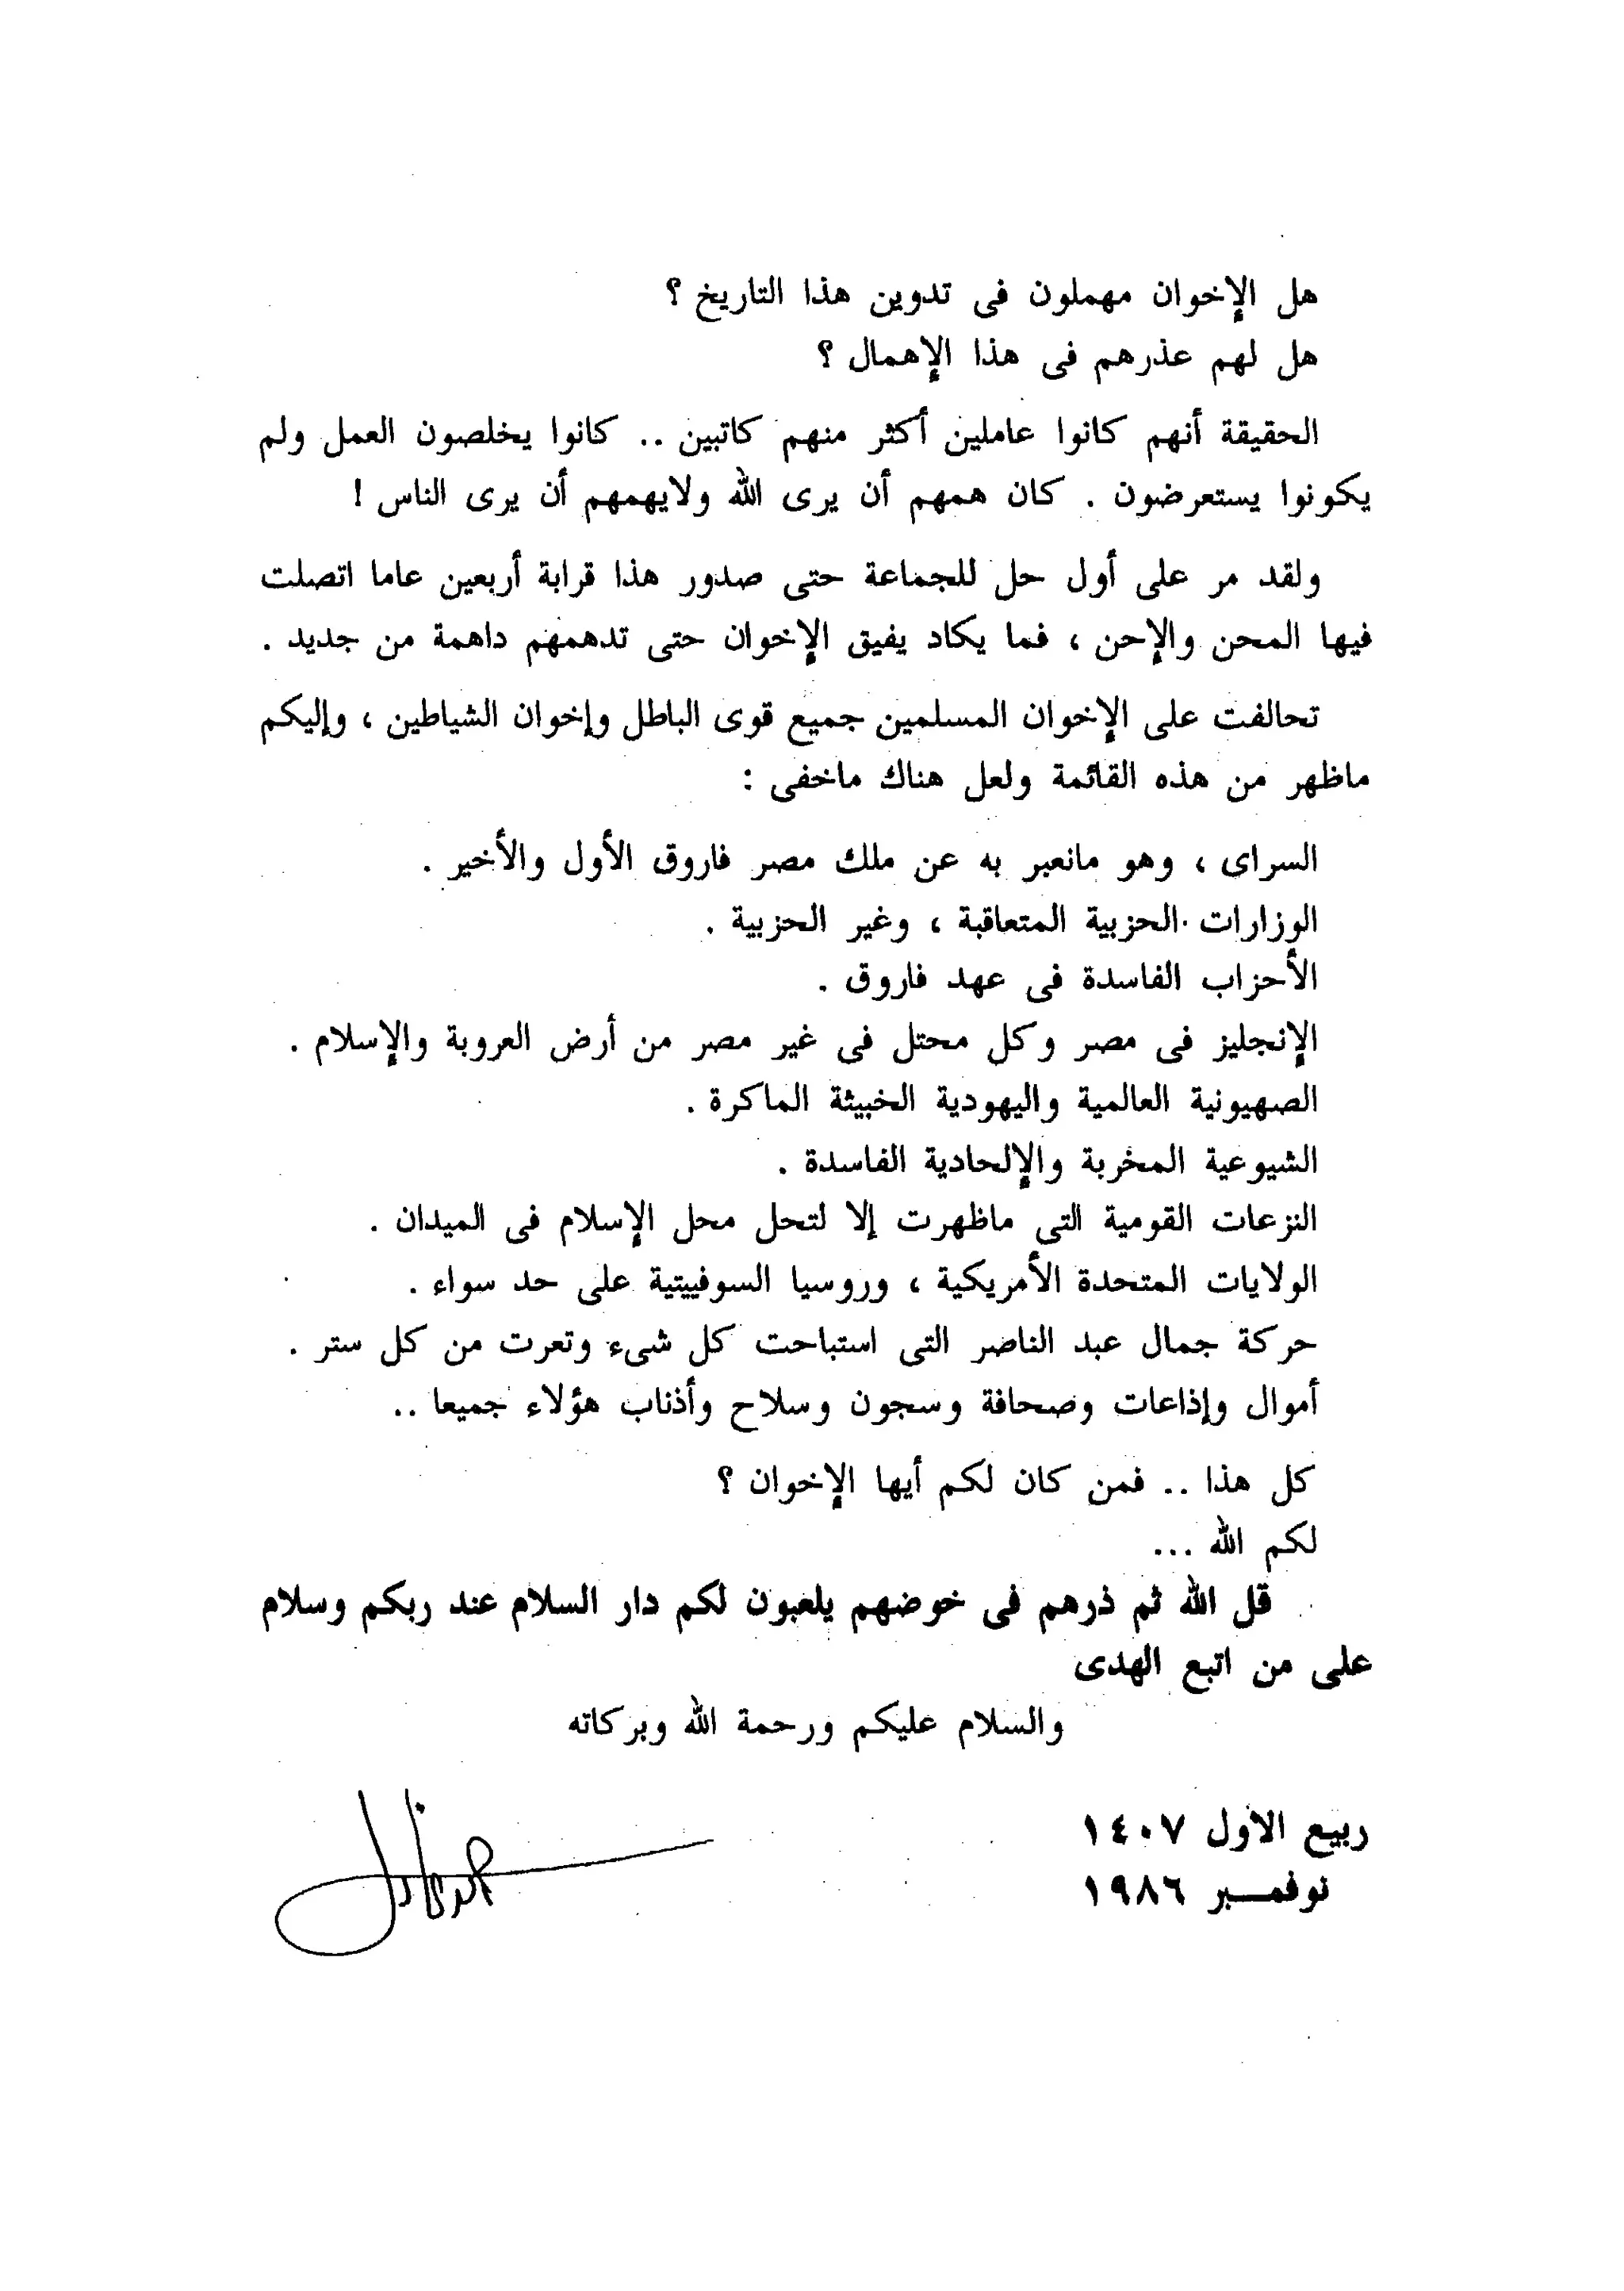 هل الإخوان مهملون فى تدوين هذا التاريخ ؟
هل لهم عذرهم فى هذا الإهمال ؟
الحقيقة أنهم كانوا عاملين أكثر منهم كاتبين .. كانوا يخلصون العمل ولم
يكونوا يستعرضون . كان همهم أن يرى الله ولايهمهم أن يرى الناس !
ولقد مر على أول حل للجماعة حتى صدور هذا قرابة أربعين عاما اتصلت
فيها المحن والإحن ، فما يكاد يفيق الإخوان حتى تدهمهم داهمة من جديد .
تحالفت على الإخوان المسلمين جميع قوى الباطل وإخوان الشياطين ، وإليكم
ماظهر من هذه القائمة ولعل هناك ماخفى :
السراى ، وهو مانعبر به عن ملك مصر فاروق الأول والأخير .
الوزارات الحزبية المتعاقبة ، وغير الحزبية .
الأحزاب الفاسدة فى عهد فاروق .
الإنجليز فى مصر وكل محتل فى غير مصر من أرض العروبة والإسلام .
الصهيونية العالمية واليهودية الخبيثة الماكرة .
الشيوعية المخربة والإلحادية الفاسدة .
النزعات القومية التى ماظهرت إلا لتحل محل الإسلام فى الميدان .
الولايات المتحدة الأمريكية ، وروسيا السوفييتية على حد سواء .
حركة جمال عبد الناصر التى استباحت كل شىء وتعرت من كل ستر .
أموال وإذاعات وصحافة وسجون وسلاح وأذناب هؤلاء جميعا ..
كل هذا .. فمن كان لكم أيها الإخوان ؟
لكم الله ...
قل الله ثم ذرهم فى خوضهم يلعبون لكم دار السلام عند ربكم وسلام
على من اتبع الهدى
والسلام عليكم ورحمة الله وبركاته
ربيع الاول ١٤٠٧
نوفمبر ١٩٨٦